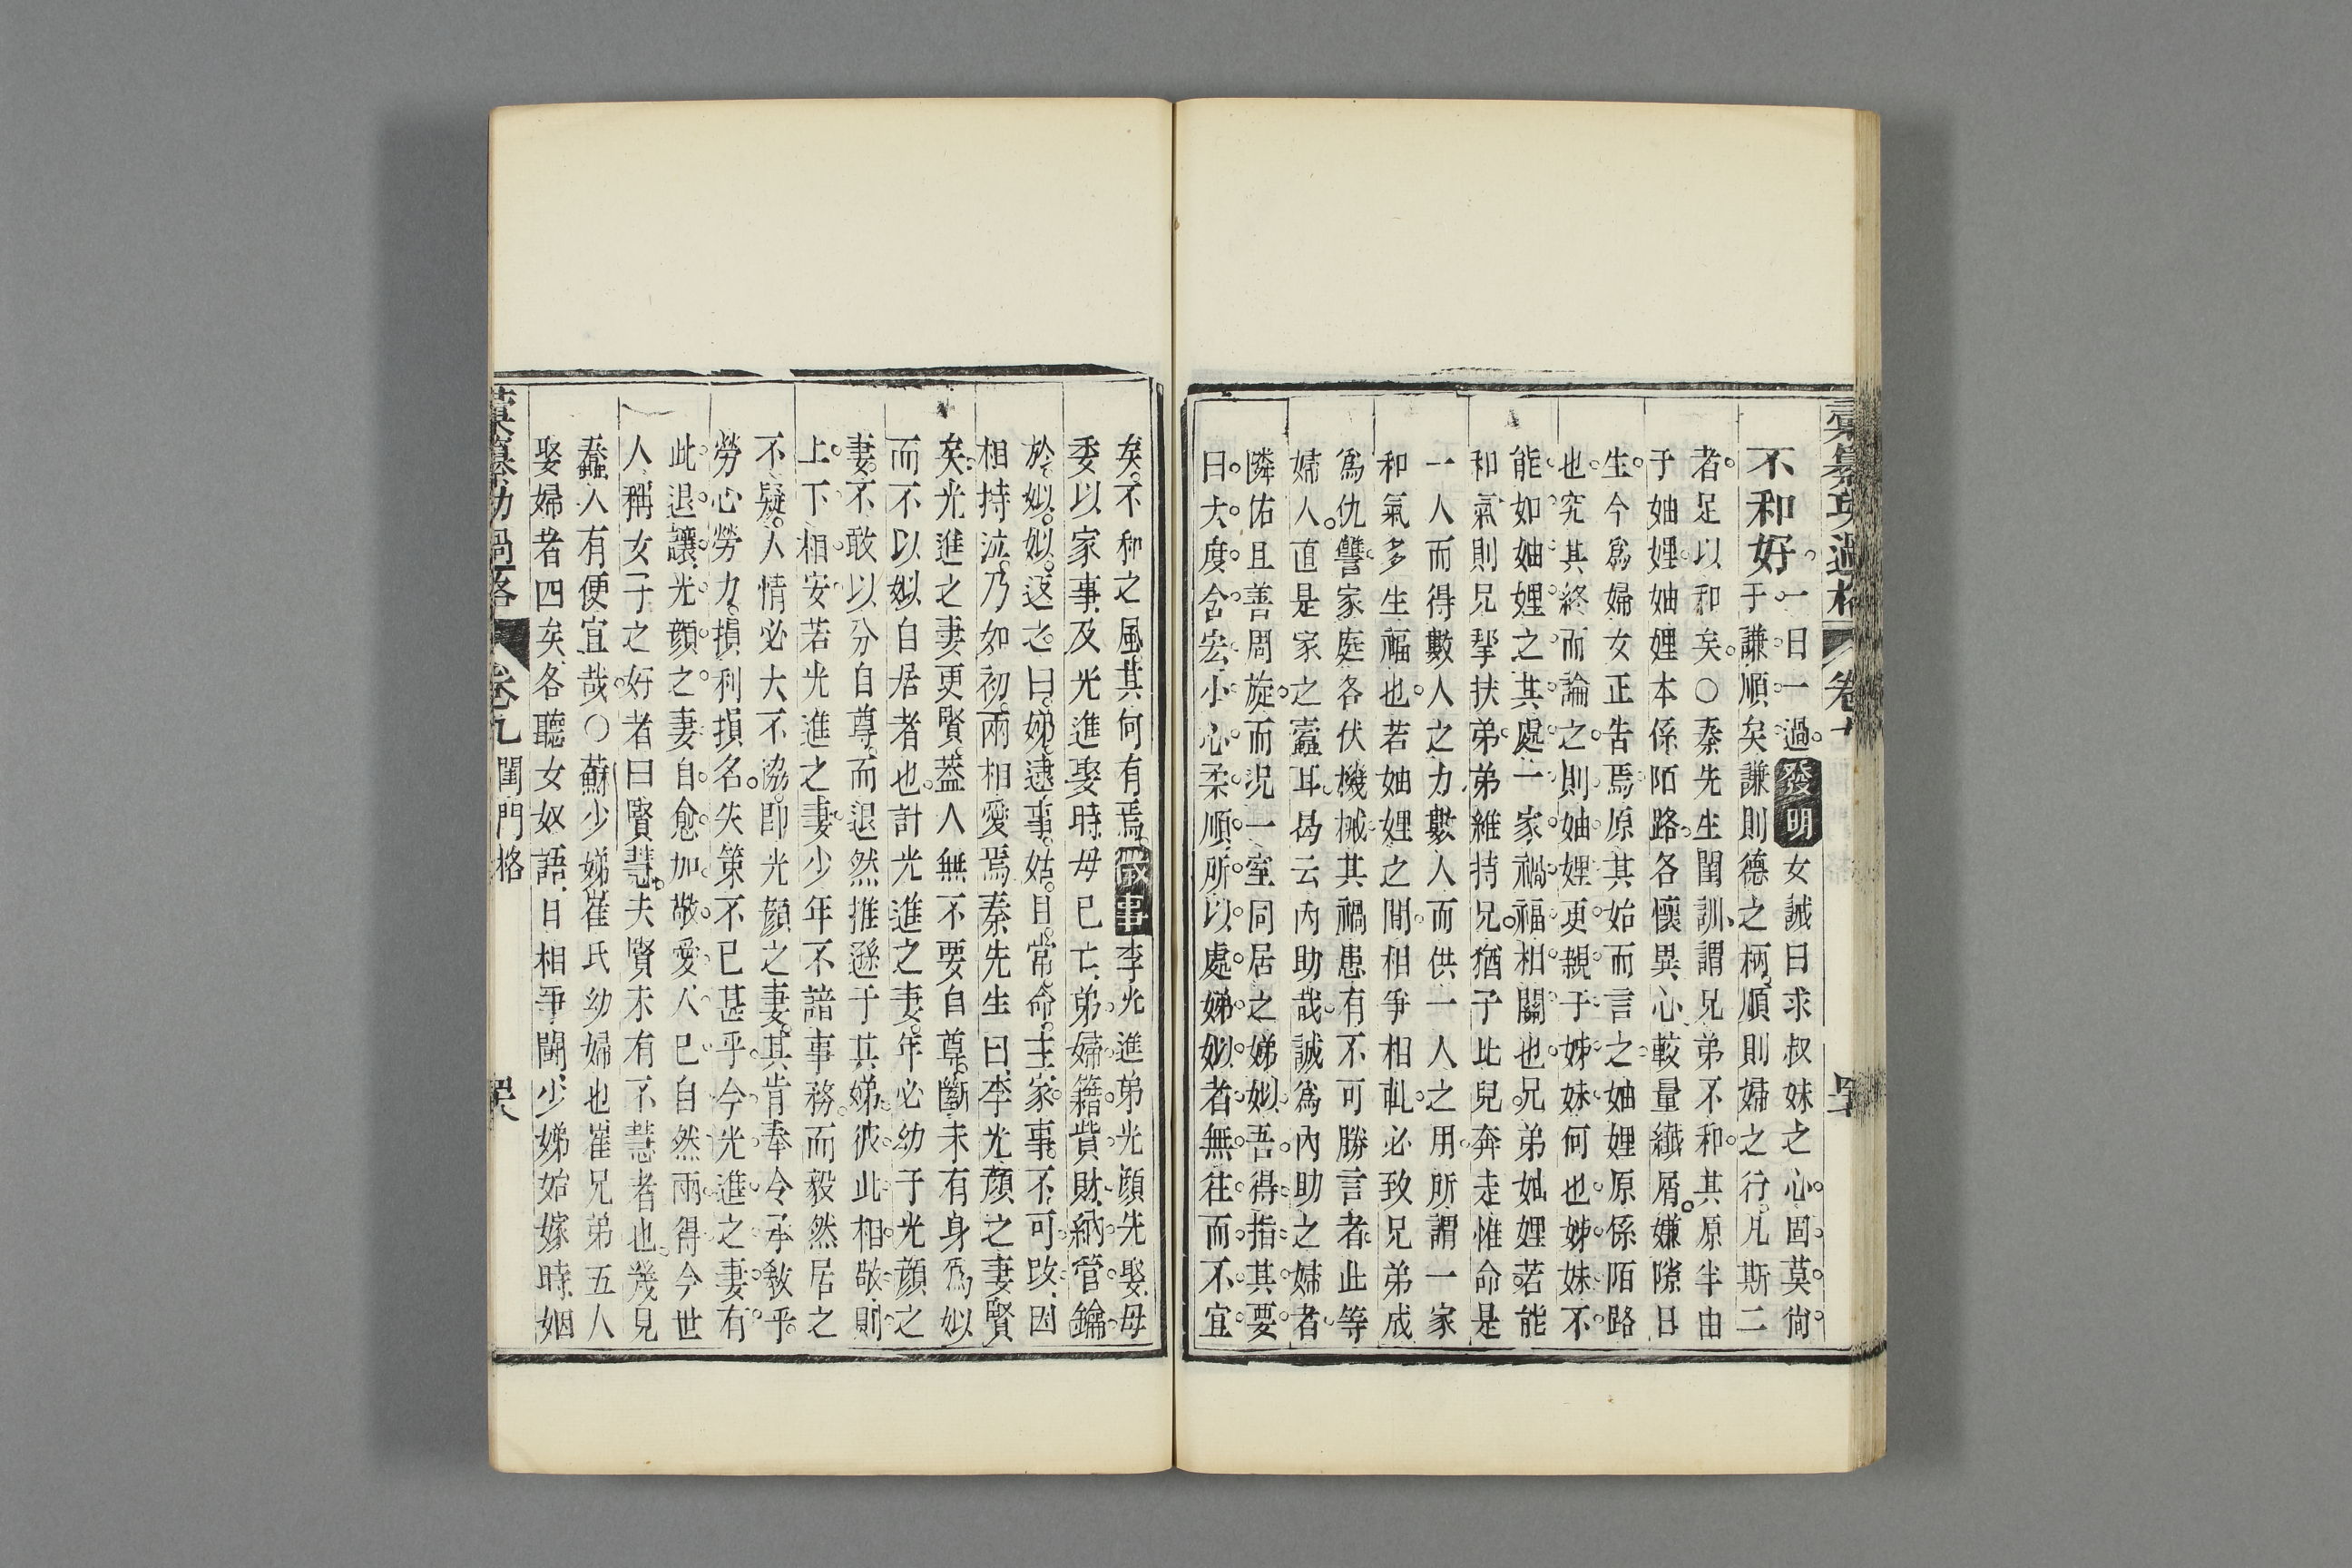 彙纂功過格 卷九
不和好。一日一過。發明 女誡曰求叔妹之心。固莫尚
于謙順矣謙則德之柄。順則婦之行。凡斯二
者。足以和矣。○秦先生閨訓、謂兄弟不和。其原半由
于妯娌。妯娌本係陌路。各懷異心、較量纖屑。嫌隙日
生。今為婦女正告焉。原其始而言之。妯娌原係陌路
也。究其終而論之。則妯娌更親于姊妹何也。姊妹不
能如妯娌之其處。一家禍福相關也。兄弟妯娌若能
和氣則兄挈扶弟。弟維持兄。猶子比兒奔走惟命是
一人而得數人之力數人而供一人之用。所謂一家
和氣多生福也。若妯娌之間。相爭相軋。必致兄弟成
為仇讐。家庭各伏機械。其禍患有不可勝言者。此等
婦人。直是家之蠧耳。曷云內助哉。誠為內助之婦者。
隣佑且善周旋。而況一室同居之娣姒。吾得指其要。
曰。大度含宏。小心柔順。所以處娣姒者。無往而不宜
矣。不和之風。其何有焉。徵事 李光進弟光顏先娶。母
委以家事、及光進娶時。母已亡、弟婦籍貲財、納管鑰
於姒。姒返之。曰。娣逮事姑。且常命主家事。不可改。因
相持泣。乃如初。兩相愛焉。秦先生曰、李光顏之妻賢
矣。光進之妻更賢。蓋人無不要自尊。斷未有身為姒
而不以姒自居者也。計光進之妻。年必幼于光顏之
妻。不敢以分自尊。而退然推遜于其娣。彼此相敬、則
上下相安。若光進之妻。少年不諳事務。而毅然居之
不疑。人情必大不協。即光顏之妻。其肯奉令承敎乎。
勞心勞力。損利損名。失策不已甚乎。今光進之妻有
此退讓。光顏之妻自愈加敬愛。人已自然兩得。今世
人稱女子之好者曰賢慧。夫賢未有不慧者也。幾見
蠢人有便宜哉。○蘇少娣崔氏幼婦也。崔兄弟五人
娶婦者四矣。各聽女奴語、日相爭鬭。少娣始嫁時。姻
彙纂功過格 卷九 閨門格